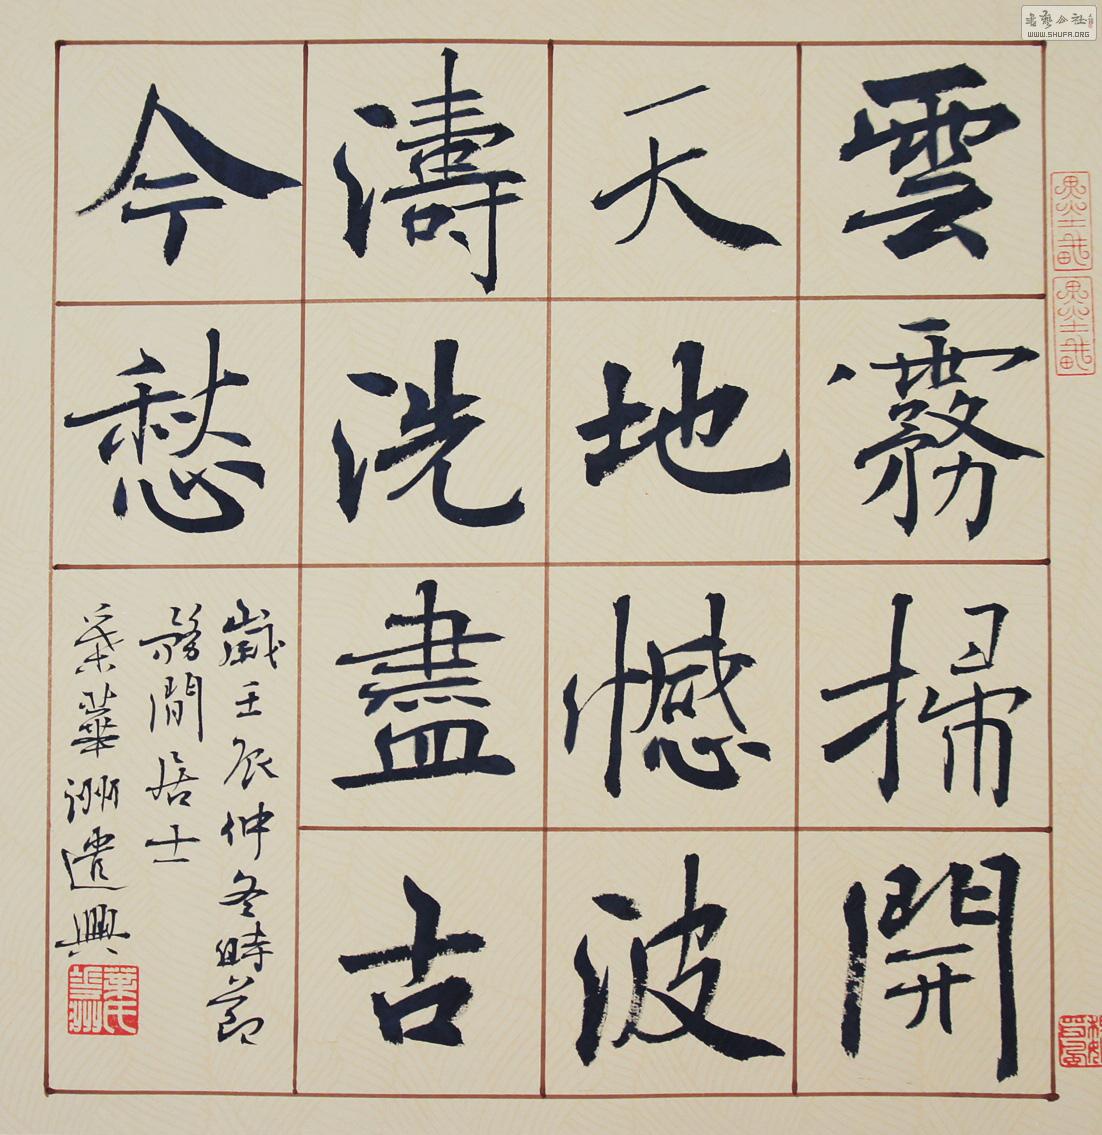 雲霧掃開
天地憾波
濤洗盡古
今愁
歲壬辰仲冬時節
務閒居士
葉華洲遣興
葉氏
WWW.SHUFA.ORG